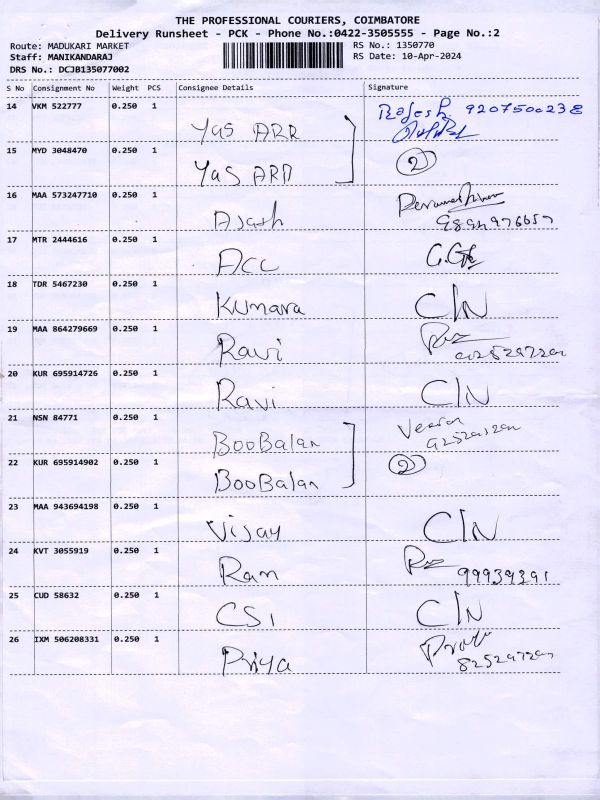 THE PROFESSIONAL COURIERS, COIMBATORE
Delivery Runsheet - PCK - Phone No.:0422-3505555 - Page No.:2
Route: MADUKARI MARKET RS No.: 1350770
Staff: MANIKANDARAJ RS Date: 10-Apr-2024
DRS No.: DCJB135077002
S No Consignment No Weight PCS Consignee Details Signature
14 VKM 522777 0.250 1 Yas ARR Rajesh 9207500238
15 MYD 3048470 0.250 1 Yas ARR 2
16 MAA 573247710 0.250 1
17 MTR 2444616 0.250 1 ACC
18 TDR 5467230 0.250 1 Kumara C/N
19 MAA 864279669 0.250 1 Ravi
20 KUR 695914726 0.250 1 Ravi C/N
21 NSN 84771 0.250 1 BooBalan
22 KUR 695914902 0.250 1 BooBalan 2
23 MAA 943694198 0.250 1 Vijay C/N
24 KVT 3055919 0.250 1 Ram
25 CUD 58632 0.250 1 CSI C/N
26 IXM 506208331 0.250 1 Priya